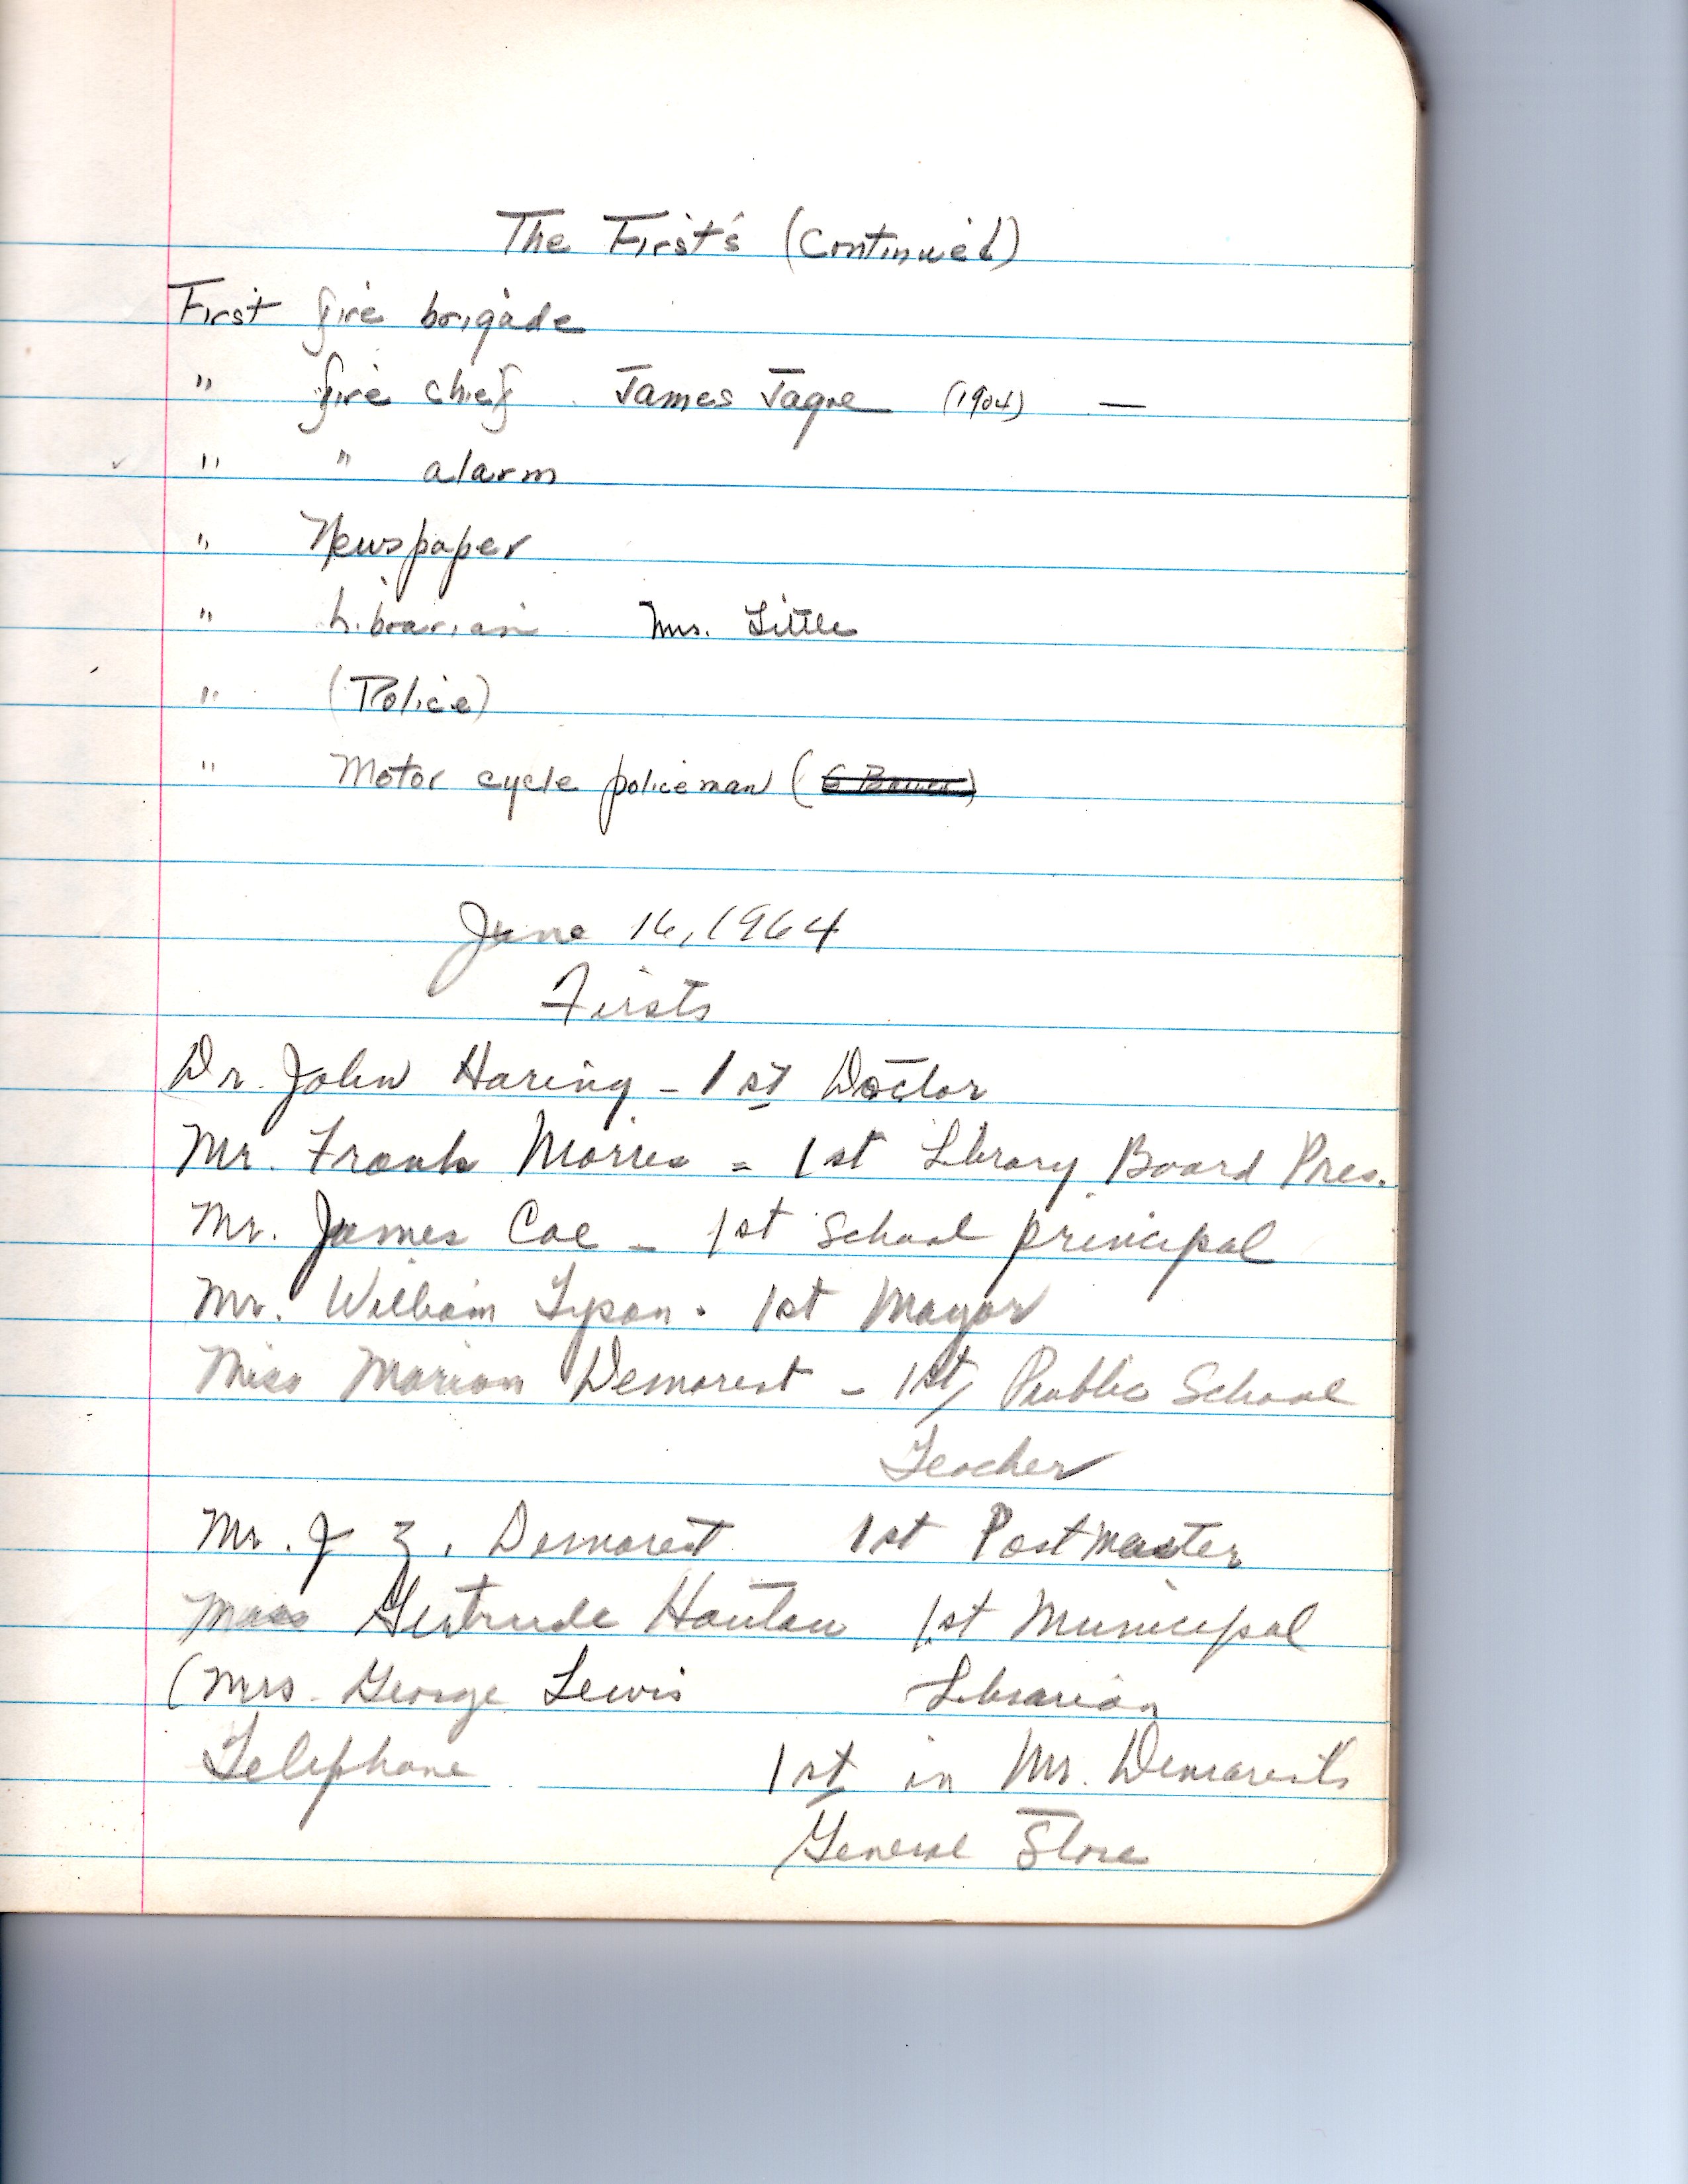 The First's (Continued)
First fire brigade
" fire chief James Jagne (1904) —
" " alarm
" Newspaper
" Librarian Mrs. Little
" (Police)
" Motor cycle policeman (
June 16, 1964
Firsts
Dr. John Haring - 1st Doctor
Mr. Frank Morris = 1st Library Board Pres.
Mr. James Coe - 1st School principal
Mr. William Tyson. 1st Mayor
Miss Marion Demarest - 1st Public School
Teacher
Mr. J Z. Demarest 1st Postmaster
Miss Gertrude 1st Municipal
(Mrs. George Lewis Librarian
Telephone 1st in Mr. Demarest's
General Store